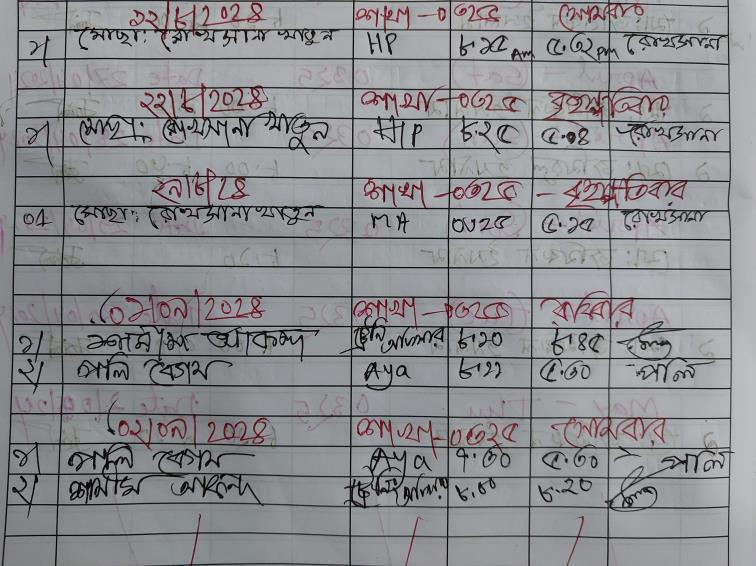 ২২/৮/2028 শাখা-০৩২৫ সোমবার
১/ মোছা: রোখসানা খাতুন HP ৮.১৫ Am ৫.৩২ pm রোখসানা
২২/৮/2028 শাখা-০৩২৫ বৃহস্পতিবার
১/ মোছা: রোখসানা খাতুন HP ৮.২৫ ৫.০৪ রোখসানা
২৯/৮/28 শাখা-০৩২৫ - বৃহস্পতিবার
০১ মোছা: রোখসানা খাতুন MA ০৩২৫ ৫.১৫ রোখসানা
০১/০৯/2028 শাখা-০৩২৫ রবিবার
১/ শামীম আকন্দ ৮.২০ ৮.৪৫
২/ পলি বেগম Aya ৮.২২ ৫.৩০ পলি
০২/০৯/2028 শাখা-০৩২৫ সোমবার
১/ পলি বেগম Aya ৭.৩০ ৫.৩০ পলি
২/ শামীম আকন্দ ৮.০০ ৮.২০